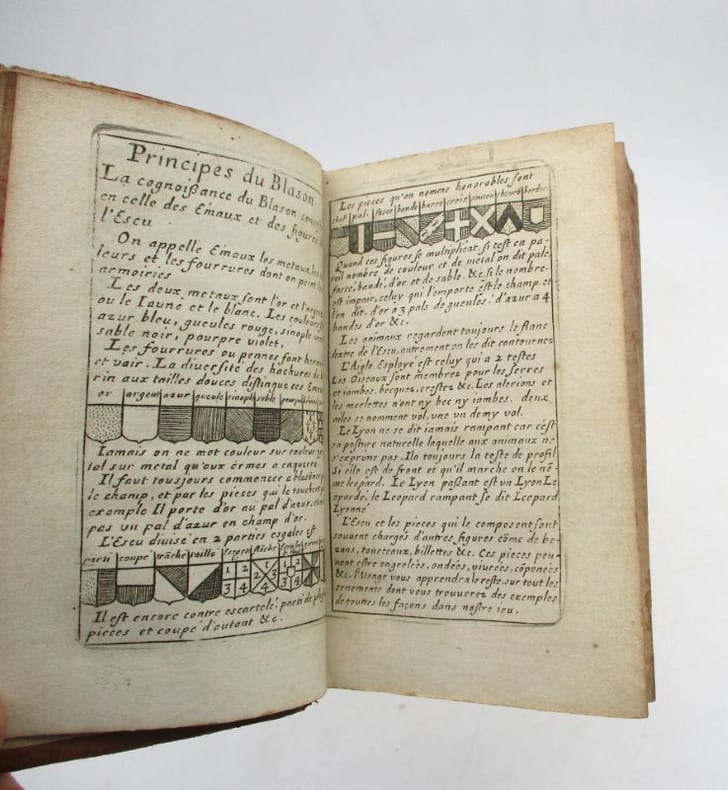 Principes du Blason
La cognoißance du Blason
en celle des Emaux et des figures
l'Escu
On appelle Emaux les metaux,
leurs et les fourrures dont on
armoiries
Les deux metaux sont l'or et l'argent
ou le Iaune et le blanc. Les couleurs
azur bleu, gueules rouge, sinople
sable noir, pourpre violet,
Les fourrures ou pennes sont
et vair. La diversité des hachures
rin aux tailles douces distingue ces
or argent azur gueule sinople sable
Iamais on ne met couleur sur couleur
tal sur metal qu'aux ármes a enquerir
Il faut tousjours commencer a
le champ, et par les pieces qui le
exemple Il porte d'or au pal d'azur,
pas vn pal d'azur en champ d'or.
L'Escu divisé en 2 parties esgales est
parti coupé trãché taillé
1 2 3 4 1 2 3 4 1 2 3 4
Il est encore contre escartelé, parti de
pieces et coupé d'autant &c.
Les pieces qu'on nomme honorables sont
chef pal fasce bande barre croix
Quand ces figures se multiplient, si c'est en pa-
reil nombre de couleur et de metal on dit palé,
fascé, bandé, d'or et de sable. &c. si le nombre
est impair, celuy qui l'emporte est le champ, et
l'on dit. d'or a 3 pals de gueules: d'azur a 4
bandes d'or &c.
Les animaux regardent toujours le flanc
dextre de l'Escu, autrement on les dit contournez
L'Aigle Esployé est celuy qui a 2 testes
Les Oiseaux sont membrez pour les serres
et iambes, becquez, crestez &c. Les alerions et
les merlettes n'ont ny bec ny iambes. deux
ailes se nomment vol, une vn demy vol.
Le Lyon ne se dit iamais rampant car c'ést
sa posture naturelle laquelle aux animaux ne
s'exprime pas. Il a toujours la teste de profil
Si elle est de front et qu'il marche on le nõ-
me leopard. Le Lyon paßant est vn Lyon Le
opardé, le Leopard rampant se dit Leopard
Lyonné
L'Escu et les pieces qui le composent sont
souvent chargés d'autres figures cõme de be-
zans, tourteaux, billettes &c. Ces pieces peu-
vent estre engrelées, ondées, viurées, cõponées
&c. l'usage vous apprendra le reste, sur tout les
ornements dont vous trouverez des exemples
de touttes les façons dans nostre ieu.